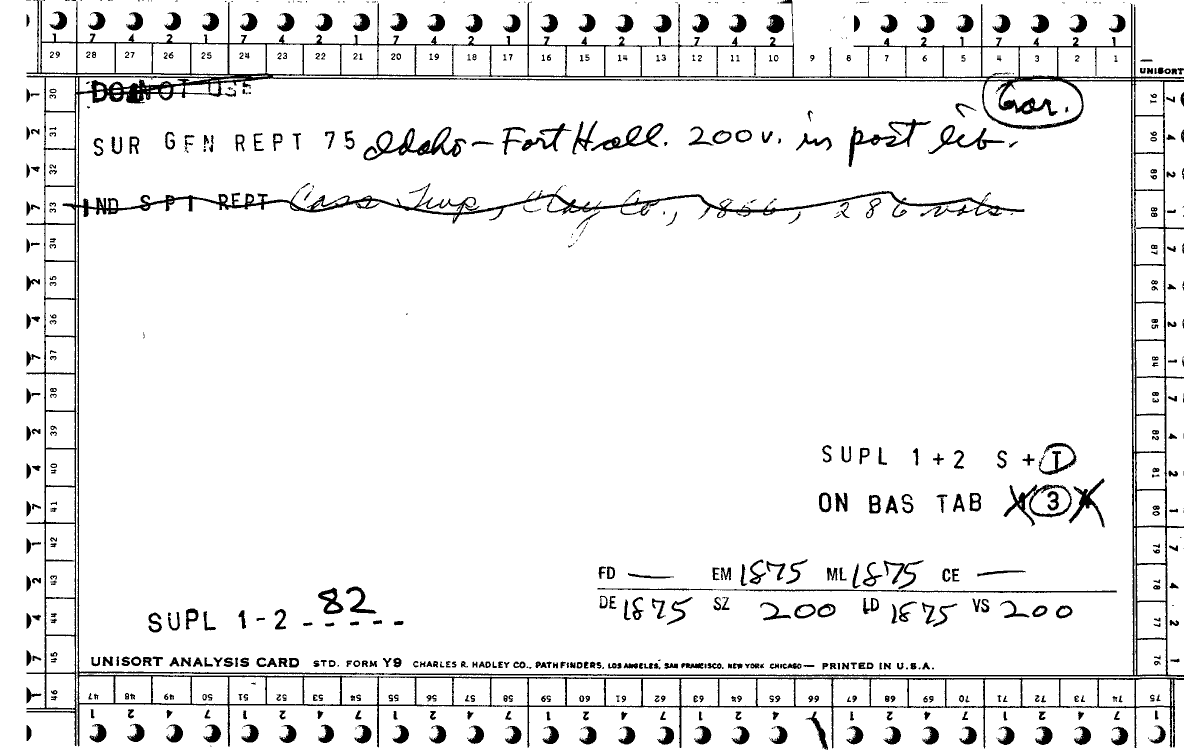 7 4 2 1 7 4 2 1 7 4 2 1 7 4 2 1 7 4 2 7 4 2 1
29 28 27 26 25 24 23 22 21 20 19 18 17 16 15 14 13 12 11 10 9 8 7 6 5 4 3 2 1
UNISORT
DO NOT USE
Gar.
SUR GEN REPT 75 Idaho - Fort Hall. 200 v. in post lib.
IND S P I REPT Cass Twp, Clay Co., 1856, 286 vols.
SUPL 1+2 S + T
ON BAS TAB 3
FD — EM 1875 ML 1875 CE —
DE 1875 SZ 200 LD 1875 VS 200
SUPL 1-2 82
UNISORT ANALYSIS CARD STD. FORM Y9 CHARLES R. HADLEY CO., PATHFINDERS, LOS ANGELES, SAN FRANCISCO, NEW YORK CHICAGO — PRINTED IN U.S.A.
30 31 32 33 34 35 36 37 38 39 40 41 42 43 44 45 46
91 90 89 88 87 86 85 84 83 82 81 80 79 78 77 76
47 48 49 50 51 52 53 54 55 56 57 58 59 60 61 62 63 64 65 66 67 68 69 70 71 72 73 74 75